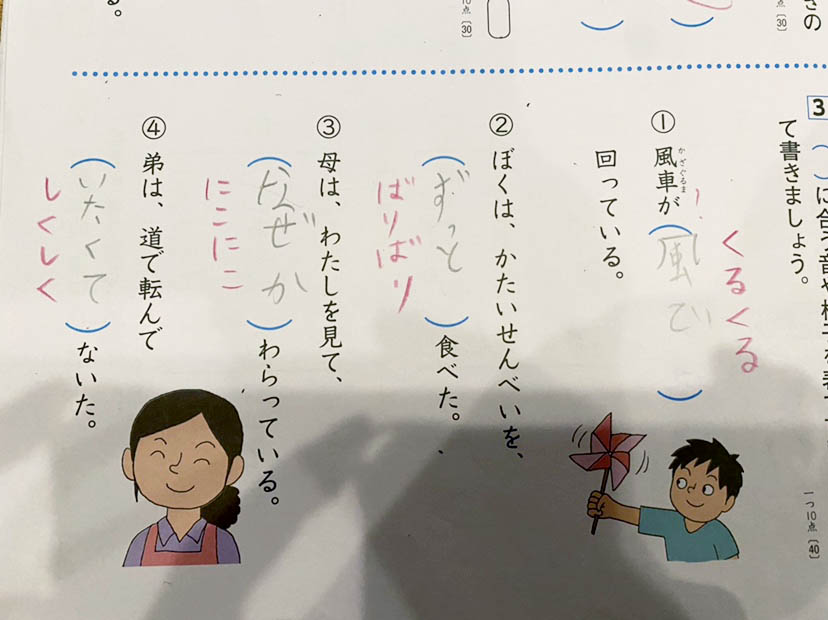 さの
10点〔30〕
10点〔30〕
る。
3
に合う音や様子を表す
て書きましょう。
一つ10点〔40〕
① 風車が（風で）
かざぐるま
くるくる
回っている。
② ぼくは、かたいせんべいを、
（ずっと）食べた。
ばりばり
③ 母は、わたしを見て、
（なぜか）わらっている。
にこにこ
④ 弟は、道で転んで
（いたくて）ないた。
しくしく